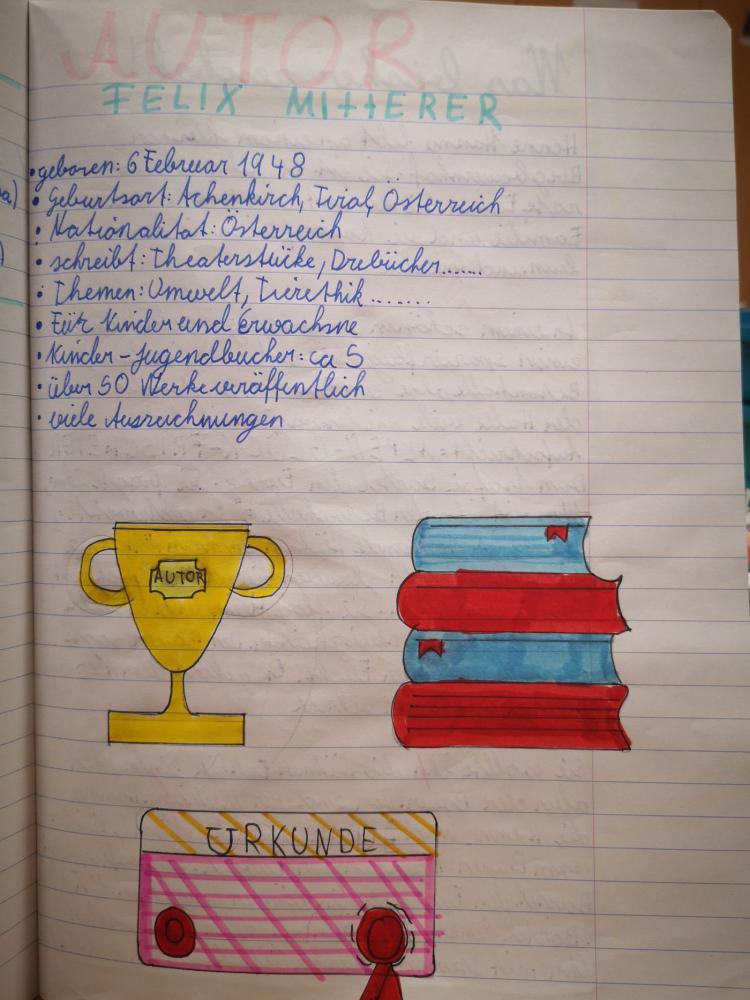 AUTOR
FELIX MITTERER
• geboren: 6 Februar 1948
• Geburtsort: Achenkirch, Tirol, Österreich
• Nationalität: Österreich
• schreibt: Theaterstücke, Drebücher......
• Themen: Umwelt, Tierethik........
• Für Kinder und Erwachsne
• Kinder-Jugendbücher: ca 5
• über 50 Werke veröffentlich
• viele Auszeichnungen
AUTOR
URKUNDE